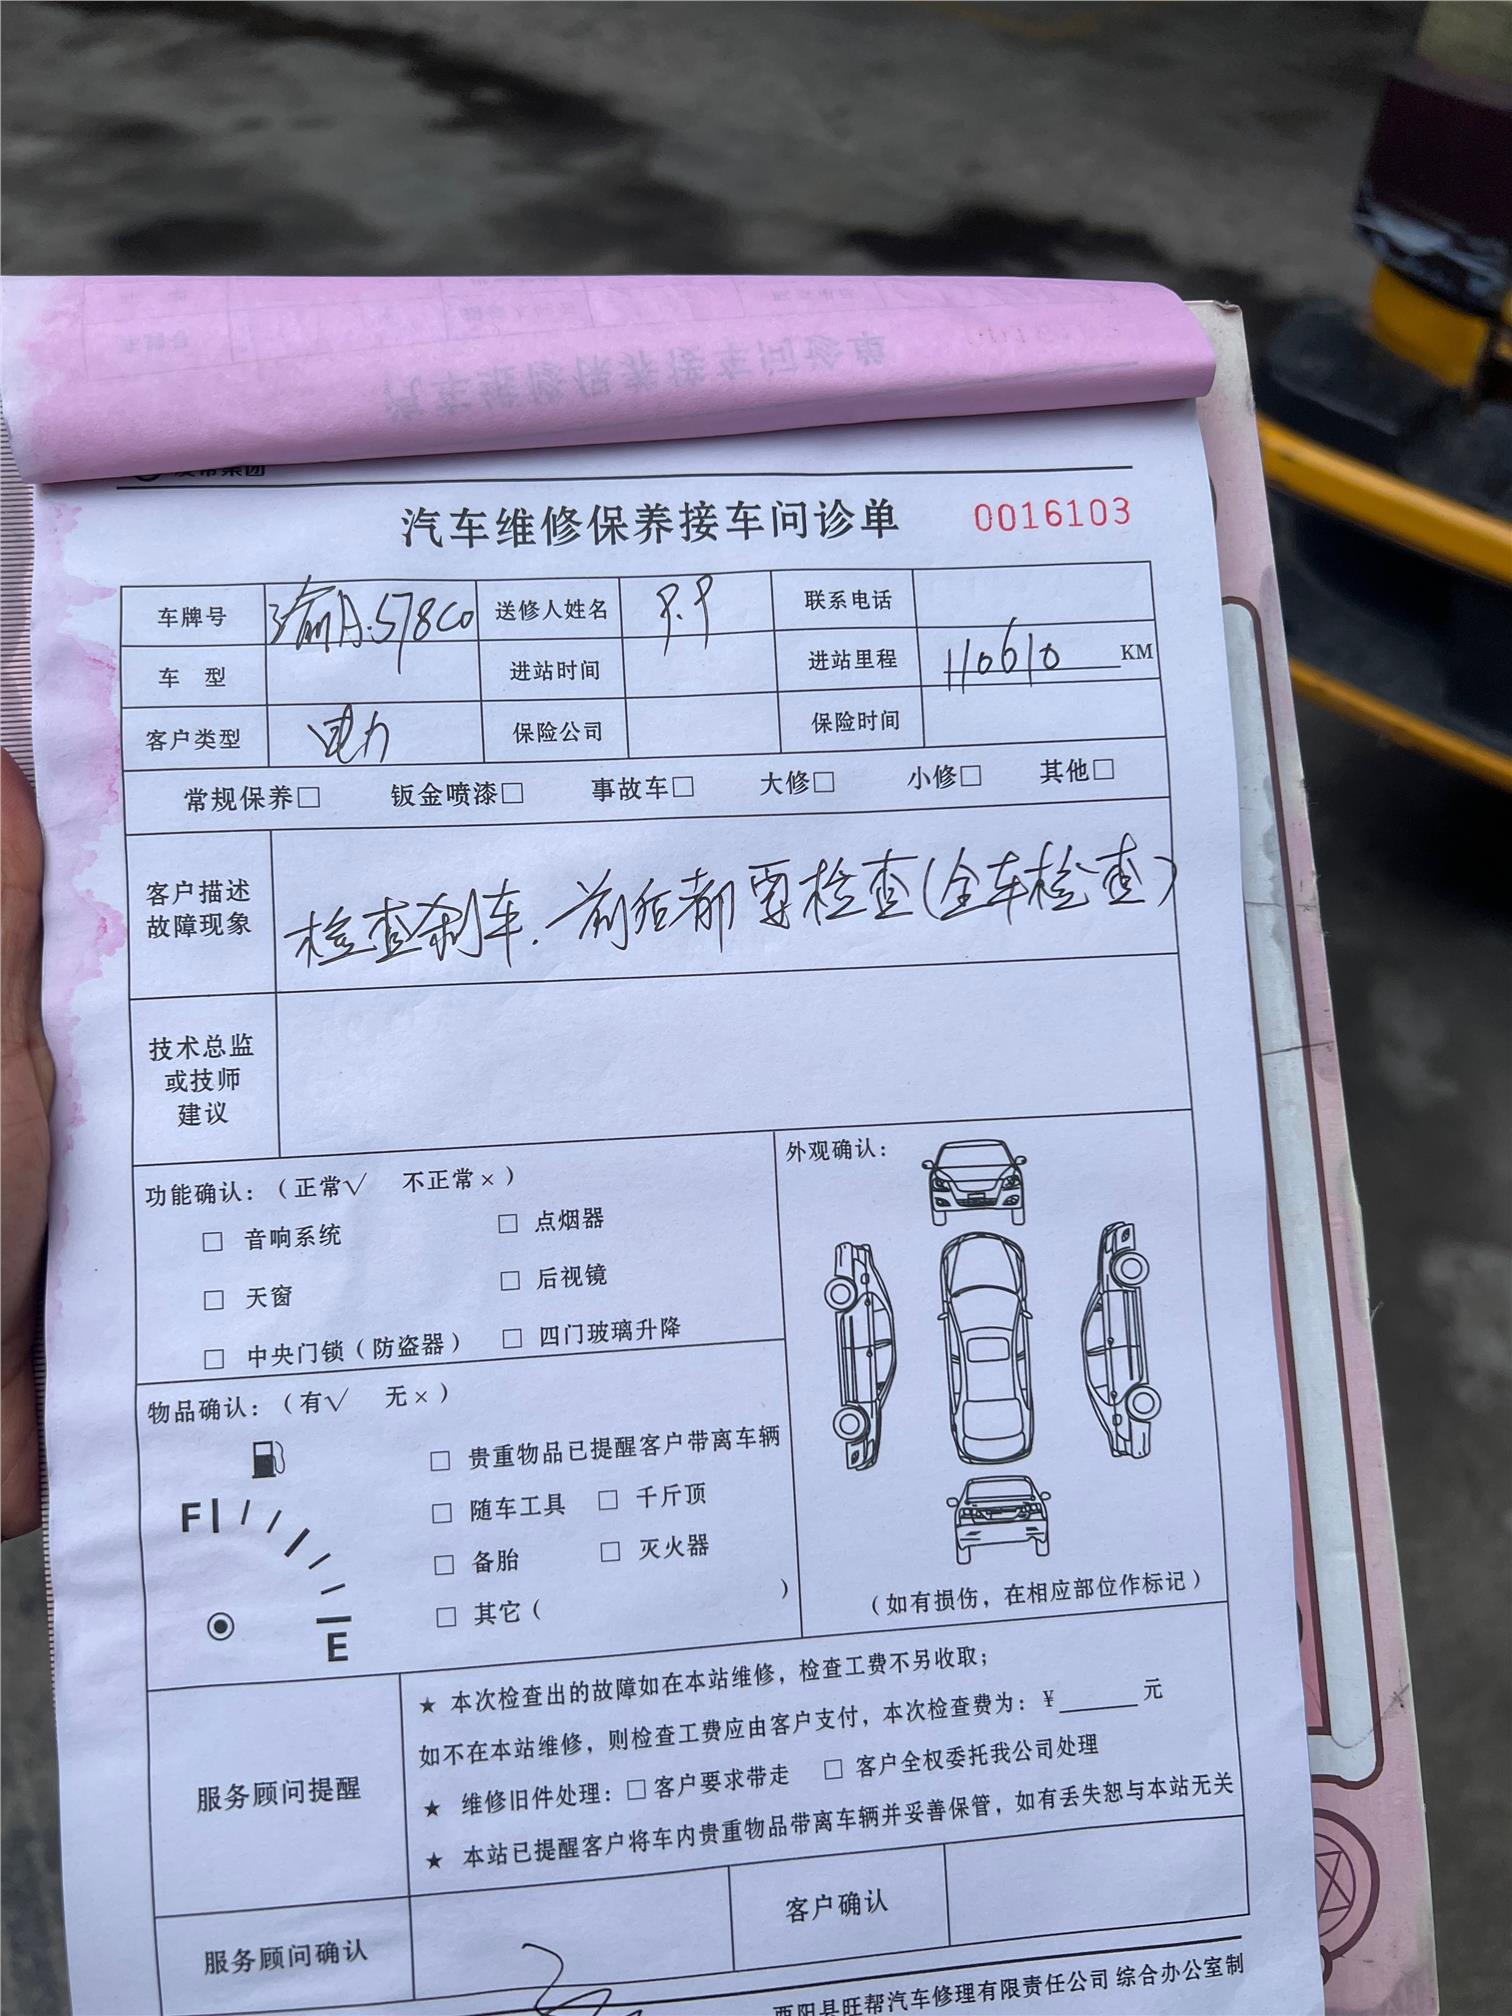 汽车维修保养接车问诊单 0016103
车牌号 渝A·578C0 送修人姓名 P.P 联系电话
车 型 进站时间 进站里程 110610 KM
客户类型 电力 保险公司 保险时间
常规保养□ 钣金喷漆□ 事故车□ 大修□ 小修□ 其他□
客户描述
故障现象
检查刹车.前后都要检查(全车检查)
技术总监
或技师
建议
功能确认:(正常√ 不正常×)
□ 音响系统 □ 点烟器
□ 天窗 □ 后视镜
□ 中央门锁(防盗器) □ 四门玻璃升降
外观确认:
(如有损伤,在相应部位作标记)
物品确认:(有√ 无×)
□ 贵重物品已提醒客户带离车辆
□ 随车工具 □ 千斤顶
□ 备胎 □ 灭火器
□ 其它( )
F
E
服务顾问提醒
★ 本次检查出的故障如在本站维修,检查工费不另收取;
如不在本站维修,则检查工费应由客户支付,本次检查费为:¥______元
★ 维修旧件处理:□客户要求带走 □ 客户全权委托我公司处理
★ 本站已提醒客户将车内贵重物品带离车辆并妥善保管,如有丢失恕与本站无关
服务顾问确认 客户确认
酉阳县旺帮汽车修理有限责任公司 综合办公室制